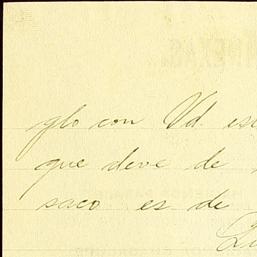 glo con Vd. es
que deve de
saco es de